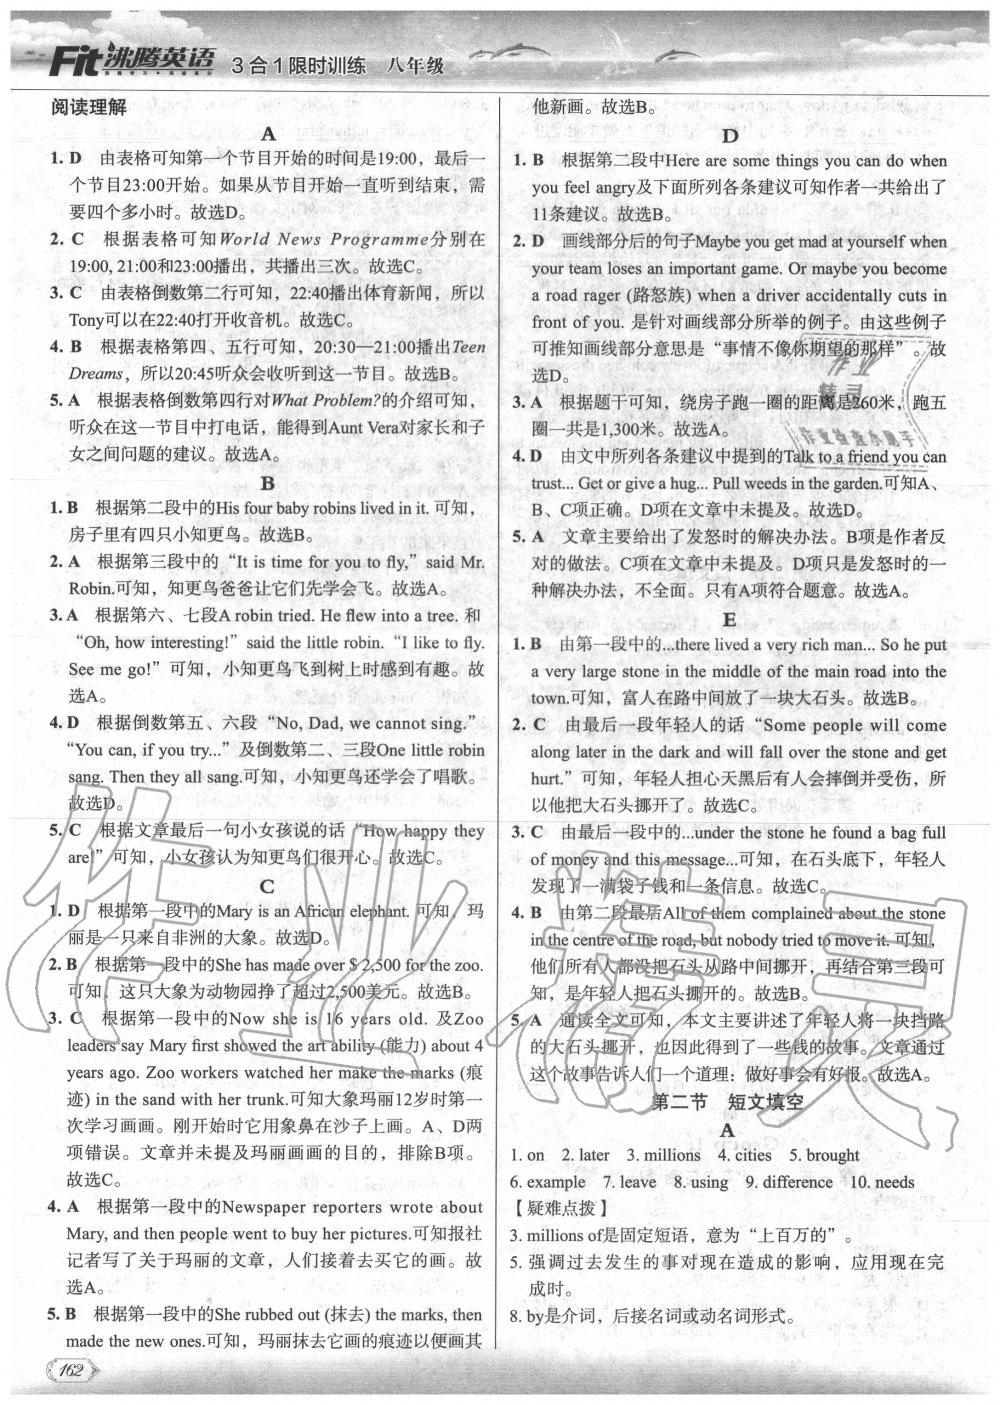 Fit沸腾英语
3合1限时训练 八年级
阅读理解
A
1. D 由表格可知第一个节目开始的时间是19:00，最后一
个节目23:00开始。如果从节目开始一直听到结束，需
要四个多小时。故选D。
2. C 根据表格可知World News Programme分别在
19:00, 21:00和23:00播出，共播出三次。故选C。
3. C 由表格倒数第二行可知，22:40播出体育新闻，所以
Tony可以在22:40打开收音机。故选C。
4. B 根据表格第四、五行可知，20:30—21:00播出Teen
Dreams，所以20:45听众会收听到这一节目。故选B。
5. A 根据表格倒数第四行对What Problem?的介绍可知，
听众在这一节目中打电话，能得到Aunt Vera对家长和子
女之间问题的建议。故选A。
B
1. B 根据第二段中的His four baby robins lived in it. 可知，
房子里有四只小知更鸟。故选B。
2. A 根据第三段中的“It is time for you to fly,” said Mr.
Robin.可知，知更鸟爸爸让它们先学会飞。故选A。
3. A 根据第六、七段A robin tried. He flew into a tree. 和
“Oh, how interesting!” said the little robin. “I like to fly.
See me go!”可知，小知更鸟飞到树上时感到有趣。故
选A。
4. D 根据倒数第五、六段“No, Dad, we cannot sing.”
“You can, if you try...”及倒数第二、三段One little robin
sang. Then they all sang.可知，小知更鸟还学会了唱歌。
故选D。
5. C 根据文章最后一句小女孩说的话“How happy they
are!”可知，小女孩认为知更鸟们很开心。故选C。
C
1. D 根据第一段中的Mary is an African elephant. 可知，玛
丽是一只来自非洲的大象。故选D。
2. B 根据第一段中的She has made over $ 2,500 for the zoo.
可知，这只大象为动物园挣了超过2,500美元。故选B。
3. C 根据第一段中的Now she is 16 years old. 及Zoo
leaders say Mary first showed the art ability (能力) about 4
years ago. Zoo workers watched her make the marks (痕
迹) in the sand with her trunk.可知大象玛丽12岁时第一
次学习画画。刚开始时它用象鼻在沙子上画。A、D两
项错误。文章并未提及玛丽画画的目的，排除B项。
故选C。
4. A 根据第一段中的Newspaper reporters wrote about
Mary, and then people went to buy her pictures.可知报社
记者写了关于玛丽的文章，人们接着去买它的画。故
选A。
5. B 根据第一段中的She rubbed out (抹去) the marks, then
made the new ones.可知，玛丽抹去它画的痕迹以便画其
他新画。故选B。
D
1. B 根据第二段中Here are some things you can do when
you feel angry及下面所列各条建议可知作者一共给出了
11条建议。故选B。
2. D 画线部分后的句子Maybe you get mad at yourself when
your team loses an important game. Or maybe you become
a road rager (路怒族) when a driver accidentally cuts in
front of you. 是针对画线部分所举的例子。由这些例子
可推知画线部分意思是“事情不像你期望的那样”。故
选D。
3. A 根据题干可知，绕房子跑一圈的距离是260米，跑五
圈一共是1,300米。故选A。
4. D 由文中所列各条建议中提到的Talk to a friend you can
trust... Get or give a hug... Pull weeds in the garden.可知A、
B、C项正确。D项在文章中未提及。故选D。
5. A 文章主要给出了发怒时的解决办法。B项是作者反
对的做法。C项在文章中未提及。D项只是发怒时的一
种解决办法，不全面。只有A项符合题意。故选A。
E
1. B 由第一段中的...there lived a very rich man... So he put
a very large stone in the middle of the main road into the
town.可知，富人在路中间放了一块大石头。故选B。
2. C 由最后一段年轻人的话“Some people will come
along later in the dark and will fall over the stone and get
hurt.”可知，年轻人担心天黑后有人会摔倒并受伤，所
以他把大石头挪开了。故选C。
3. C 由最后一段中的...under the stone he found a bag full
of money and this message...可知，在石头底下，年轻人
发现了一满袋子钱和一条信息。故选C。
4. B 由第二段最后All of them complained about the stone
in the centre of the road, but nobody tried to move it. 可知，
他们所有人都没把石头从路中间挪开，再结合第三段可
知，是年轻人把石头挪开的。故选B。
5. A 通读全文可知，本文主要讲述了年轻人将一块挡路
的大石头挪开，也因此得到了一些钱的故事。文章通过
这个故事告诉人们一个道理：做好事会有好报。故选A。
第二节 短文填空
A
1. on 2. later 3. millions 4. cities 5. brought
6. example 7. leave 8. using 9. difference 10. needs
【疑难点拨】
3. millions of是固定短语，意为“上百万的”。
5. 强调过去发生的事对现在造成的影响，应用现在完
成时。
8. by是介词，后接名词或动名词形式。
162
作业精灵
作业
精灵
作业检查小助手